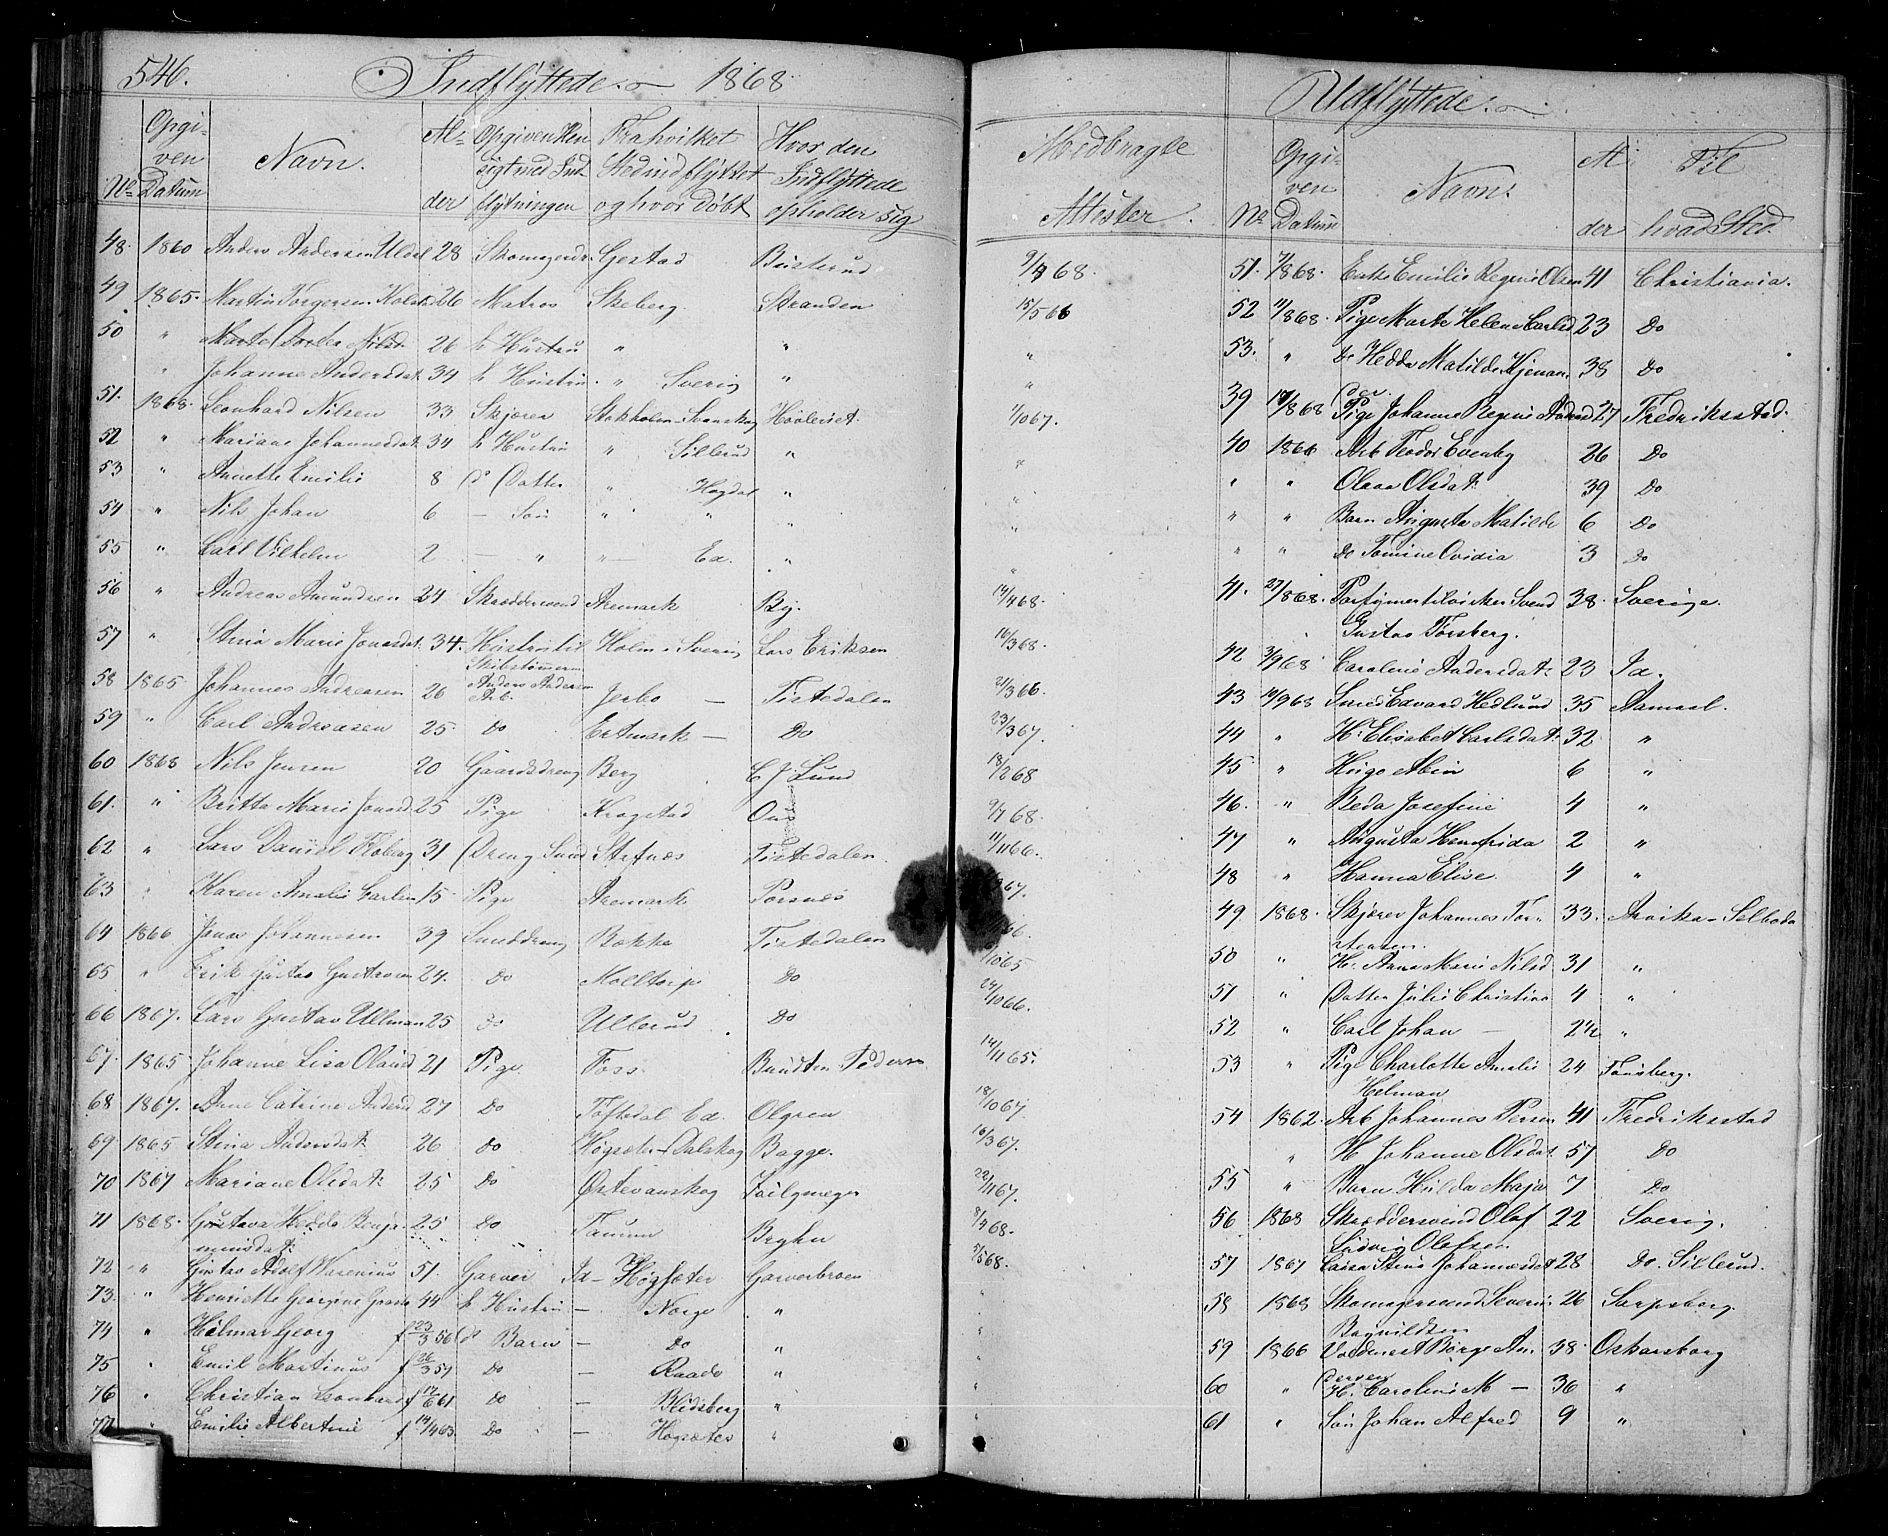 546.
Indflyttede. 1868
Opgiven Datum
No
Navn.
Alder
Opgiven Hensigt med Indflytningen
Fra hvilket Sted indflyttet og hvor døbt
Hvor den Indflyttede opholder sig
48. 1860 Anders Andersen 28 Gestad Busterud
49 1865. Martin Torgersen 26 Matros Skeberg Stranden
50 " Marte Dorthe Nilsd. 26 h Hustru " "
" Johanne Andersdat. 34 h Hustru. " Sverig "
51. 1868. Leonhard Nilsen 33 Skjærer Stokholm
52 " Mariane Johannesdat. 34 h Hustru " Sillerud "
53 " Annette Emilie 8 Ds Datter " Hogdal "
54 " Nils Johan 6 — Søn " " "
55 " Carl Vilhelm 2 — " " — Ed. "
56 " Andreas Amundsen 24 Skræddersvend Aremark By.
57 " Stina Marie Jonasdat. 34. Hustru til Skibstømmerm Anders Andersen Holm i Sverig Lars Eriksen
58 1865 Johannes Andreasen 26 Arb. Jerbo — Tistedalen
59 " Carl Andreasen 25. Do Ertmark — Do
60 1868 Nils Jensen 20 Gaardsdreng Berg C J Lund
61. " Britta Maria Jonasd. 25 Pige Krogstad
62 " Lars Daniel 31 Dreng Tistedalen
63 " Karen Amalie Carlsen 15. Pige Aremark
64 1866 Jonas Johannesen 39 Smeddreng Tistedalen
65 " Erik Gustav Gustavsen 24. Do Molltorp Do
66 1867. Lars Gustav Ullman 25 Do Ullerud Do
67. 1865 Johanne Lisa Olausd 21 Pige Foss. Pedersen
68 1867. Anne Catrine Andersd 27 Do Tøftedal Ed. Olgren
69 1865 Stina Andersdat. 26 Do Høgsæter - Dalskog Bagge.
70 1867 Mariane Olsdat. 25 Do Østevanskog
71 1868. Gustava Hedda Benjaminsdat. 25 Do Tanum Bryhn
72 " Gustav Adolf Warenius 51. Garver Id - Høgsæter Garverbroen
73. " Henriette Georgine 44 h Hustru — Norge "
74 " Hilmar Georg f 23/3 56 ds Barn — Do "
75 " Emil Martinus f 26/3 59 Do — Raade "
76 " Christian Leonhard f 12/6 61 Do — Blidsberg "
77 " Emilie Albertine f 14/4 63 Do — Høgsæter "
Udflyttede.
Medbragte Attester.
9/4 68.
15/5 66
"
"
1/10 67.
"
"
"
"
14/4 68.
16/3 68.
21/3 66.
23/3 67.
18/2 68
9/4 68.
11/11 66.
67.
66.
/10 65
24/10 66.
14/11 65.
18/10 67.
16/3 67.
22/11 67.
8/4 68.
5/5 68.
"
"
"
"
"
No
Opgiven Datum
Navn.
Alder
Til hvad Sted
51. 1868. Enke Emilie Regine Olsen 41 Christiania.
52 1868. Pige Marte Helene Carlsd 23 Do
53. " Do Hedda Matilde 38 Do
39 1868 Pige Johanne Regine 27 Fredriksstad.
40 1866 Arb Teodor Evenby 26 Do
" " Olava Olsdat. 39 Do
" " Barn Augusta Matilde 6 Do
" " Do Tomine Ovidia 3 Do
41. 27/1868. Svend Gustav Forsberg. 38. Sverige.
42 3/9 68 Caroline Andersdat. 23 Id.
43 14/9 68 Smed Edvard Hedlund 35 Aamaal.
44 " H. Elisabet Carlsdat. 32 "
45 " Hugo Albin 6 "
46. " Beda Josefine 4 "
47 " Augusta Hemfrida 2 "
48 " Hanna Elise. 4 "
49 1868. Skjærer Johannes Torstensen. 33. Arvika - Selboda
50 " H. Anna Marie Nilsd 31 "
51 " Datter Julie Christina 4 "
52 " Carl Johan — 2½ "
53 " Pige Charlotte Amalie Helman 24 Tønsberg.
54 1862. Arb Johannes Persen 41 Fredriksstad
" H Johanne Olsdat. 57 Do
55 " Barn Hulda Maja 7 Do
56 1868 Skræddersvend Olof Ludvig Olofsen 22 Sverig.
57 1867 Caisa Stina Johannesdat 28 Do. Sillerud.
58 1868 Skomagersvend Severin Bagvildsen 26 Sarpsborg.
59 1866 Børge Andersen 38. Oskarsborg
60 " H. Caroline M — 36 "
61 " Søn Johan Alfred 9 "